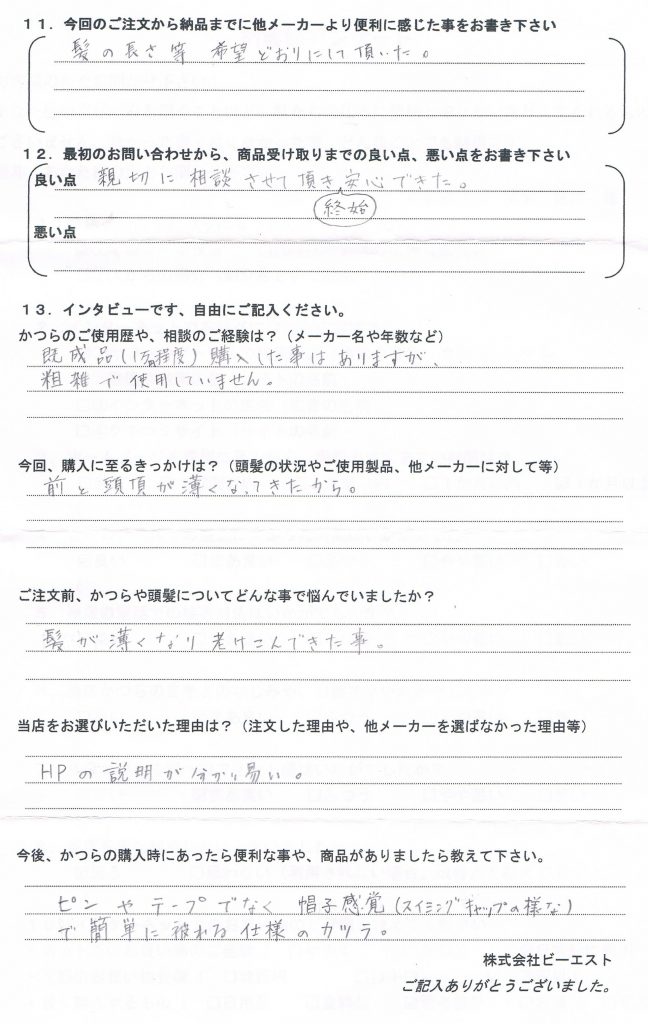 １１．今回のご注文から納品までに他メーカーより便利に感じた事をお書き下さい
髪の長さ等 希望どおりにして頂いた。
１２．最初のお問い合わせから、商品受け取りまでの良い点、悪い点をお書き下さい
良い点 親切に相談させて頂き安心できた。
終始
悪い点
１３．インタビューです、自由にご記入ください。
かつらのご使用歴や、相談のご経験は？（メーカー名や年数など）
既成品(1万程度)購入した事はありますが、
粗雑で使用していません。
今回、購入に至るきっかけは？（頭髪の状況やご使用製品、他メーカーに対して等）
前と頭頂が薄くなってきたから。
ご注文前、かつらや頭髪についてどんな事で悩んでいましたか？
髪が薄くなり老けこんできた事。
当店をお選びいただいた理由は？（注文した理由や、他メーカーを選ばなかった理由等）
HPの説明が分かり易い。
今後、かつらの購入時にあったら便利な事や、商品がありましたら教えて下さい。
ピンやテープでなく 帽子感覚(スイミングキャップの様な)
で簡単に被れる仕様のカツラ。
株式会社ビーエスト
ご記入ありがとうございました。